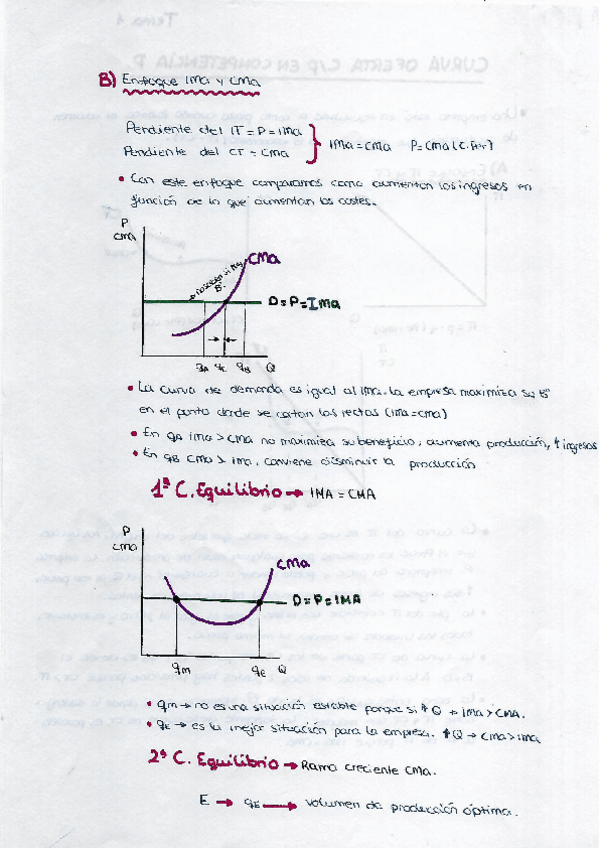 B) Enfoque IMa y CMa
Pendiente del IT = P = IMa
Pendiente del CT = CMa
IMa = CMa P = CMa (C. Per)
• Con este enfoque comparamos como aumentan los ingresos en
función de lo que aumentan los costes.
P
CMa
CMa
Bº
D = P = IMa
qA qE qB Q
• La curva de demanda es igual al IMa. La empresa maximiza su Bº
en el punto donde se cortan las rectas (IMa = CMa)
• En qA IMa > CMa no maximiza su beneficio, aumenta producción, ↑ ingresos
• En qB CMa > IMa, conviene disminuir la producción
1ª C. Equilibrio → IMA = CMA
P
CMa
CMa
D = P = IMA
qm qE Q
• qm → no es una situación estable porque si ↑ Q → IMa > CMA.
• qE → es la mejor situación para la empresa. ↑ Q → CMa > IMa
2ª C. Equilibrio → Rama creciente CMa.
E → qE → volumen de producción óptima.